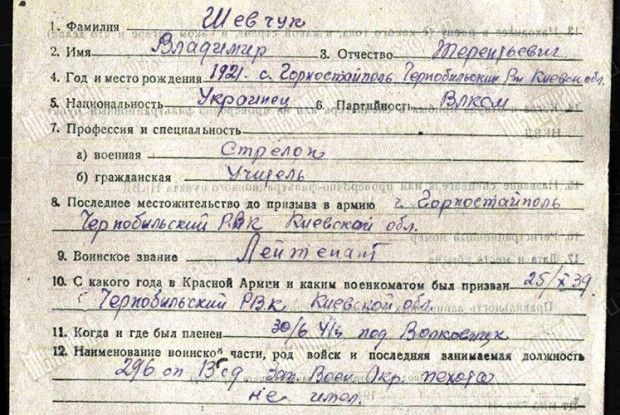 1. Фамилия Шевчук
2. Имя Владимир 3. Отчество Терентьевич
4. Год и место рождения 1921. с. Горностайполь Чернобыльский р-н Киевск обл.
5. Национальность Украинец 6. Партийность Влксм
7. Профессия и специальность
а) военная Стрелок
б) гражданская Учитель
8. Последнее местожительство до призыва в армию г. Горностайполь
Чернобыльский РВК Киевской обл.
9. Воинское звание Лейтенант
10. С какого года в Красной Армии и каким военкоматом был призван 25/X 39.
Чернобыльский РВК Киевской обл.
11. Когда и где был пленен 30/6 41г под
12. Наименование воинской части, род войск и последняя занимаемая должность
296 сп 13 сд Зап. Воен. Окр. пехота
не имел.